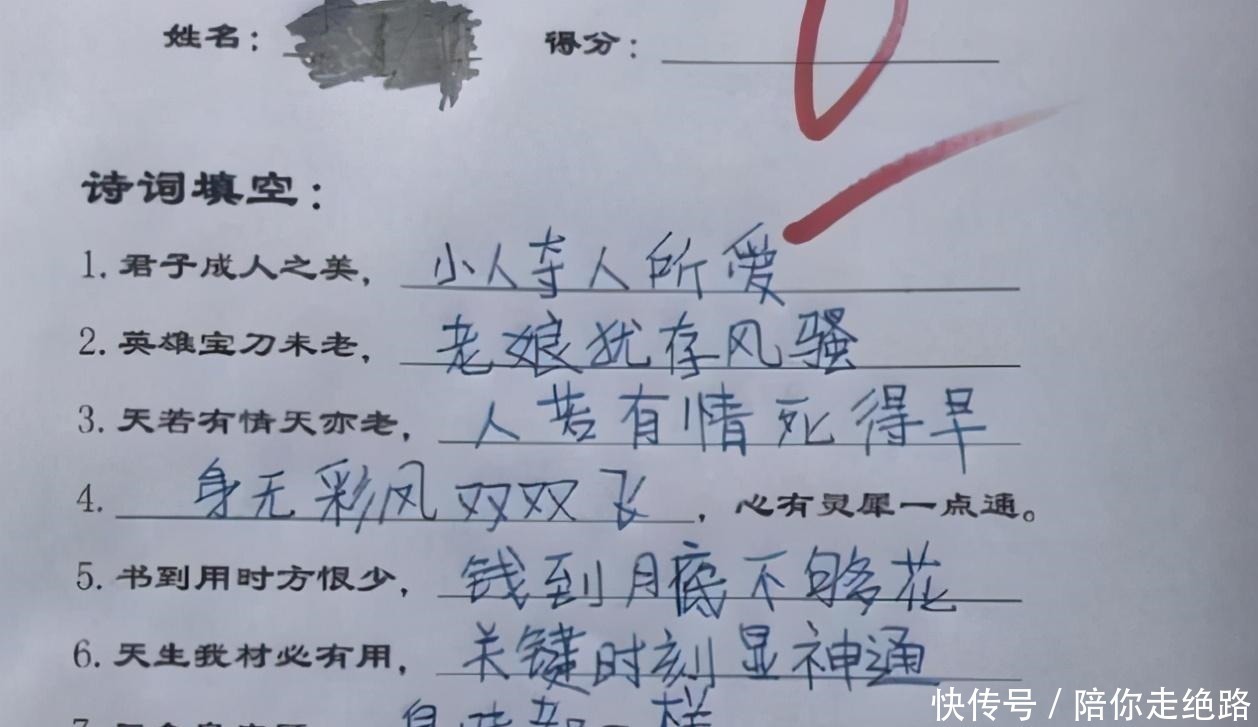 姓名： 得分：
诗词填空：
1. 君子成人之美，小人夺人所爱
2. 英雄宝刀未老，老娘犹存风骚
3. 天若有情天亦老，人若有情死得早
4. 身无彩风双双飞，心有灵犀一点通。
5. 书到用时方恨少，钱到月底不够花
6. 天生我材必有用，关键时刻显神通
快传号 / 陪你走绝路